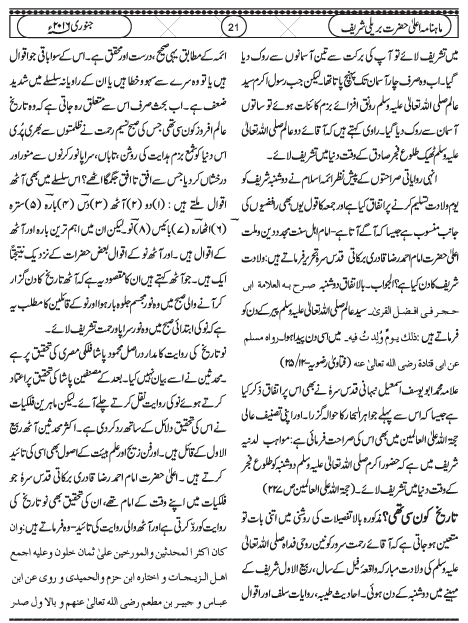 ماہنامہ اعلیٰ حضرت بریلی شریف
21
جنوری ۲۰۱۶ء
میں تشریف لائے تو آپ کی برکت سے تین آسمانوں سے روک دیا
گیا۔ اب وہ صرف چار آسمان تک پہنچ پاتا تھا لیکن جب رسول اکرم سید
عالم صلی اللہ تعالیٰ علیہ وسلم رونق افزائے بزم کائنات ہوئے تو ساتوں
آسمان سے روک دیا گیا۔ راوی کہتے ہیں کہ آقائے دوعالم صلی اللہ تعالیٰ
علیہ وسلم ٹھیک طلوع فجر صادق کے وقت دنیا میں تشریف لائے۔
انہی روایاتی صراحتوں کے پیش نظر ائمہ اسلام نے دوشنبہ شریف کو
یوم ولادت تسلیم کرنے پر اتفاق کیا ہے اور جمعہ کا قول یوں بھی رافضیوں کی
جانب منسوب ہے جیسا کہ آگے آتا ہے۔ امام اہل سنت مجدد دین وملت
اعلیٰ حضرت امام احمد رضا قادری برکاتی قدس سرہٗ تحریر فرماتے ہیں: ولادت
شریف کا دن کیا ہے؟ الجواب۔ بالاتفاق دوشنبہ صرح بہ العلامة ابی
حجر فی افضل القریٰ۔ سید عالم صلی اللہ تعالیٰ علیہ وسلم پیر کے دن کو
فرماتے ہیں: ذلک یومٌ وُلِدتُ فیہ۔ میں اسی دن پیدا ہوا۔ رواہ مسلم
عن ابی قتادة رضی اللہ تعالیٰ عنہ (فتاویٰ رضویہ
علامہ محمد ابو یوسف اسمعیل نبہانی قدس سرہٗ نے بھی اس پر اتفاق ذکر کیا
ہے جیسا کہ اس سے پہلے جواہر البحار کا حوالہ گزرا۔ اور اپنی تصنیف عالی
حجۃ اللہ علی العالمین میں بھی اس کی صراحت فرمائی ہے: مواہب لدنیہ
شریف میں ہے کہ حضور اکرم صلی اللہ تعالیٰ علیہ وسلم دوشنبہ کو طلوع فجر
کے وقت دنیا میں تشریف لائے۔ (حجۃ اللہ علی العالمین ص
تاریخ کون سی تھی؟ مذکورہ بالا تفصیلات کی روشنی میں اتنی بات تو
متعین ہو جاتی ہے کہ آقائے رحمت سرور کونین روحی فداہ صلی اللہ تعالیٰ
علیہ وسلم کی ولادت مبارکہ واقعۂ فیل کے سال، ربیع الاول شریف کے
مہینے میں دوشنبہ کے دن ہوئی۔ احادیث طیبہ، روایات سلف اور اقوال
ائمہ کے مطابق یہی صحیح، درست اور محقق ہے۔ اس کے سوا باقی جو اقوال
ہیں یا تو وہ سرے سے سہو و خطا ہیں یا ان کے راویانہ سلسلے میں شدید
ضعف ہے۔ اب بحث صرف اس سے متعلق رہ جاتی ہے کہ وہ تاریخ
عالم افروز کون سی تھی جس کی صبح نسیم رحمت نے ظلمتوں سے بھری پُری
اس دنیا کو شمع بزم ہدایت کی روشن، تاباں، سراپا نور کرنوں سے منور اور
درخشاں کر دیا جس سے افق تا افق جگمگا اٹھے؟ اس سلسلے میں بھی آٹھ
اقوال ملتے ہیں: (۱) دو (۲) آٹھ (۳) دس (۴) بارہ (۵) سترہ
(۶) اٹھارہ (۷) بائیس (۸) نو لیکن ان میں اہم ترین بارہ اور آٹھ
کے اقوال ہیں۔ اور آٹھ نو کے اقوال بعض حضرات کے نزدیک نتیجتاً
ایک ہیں۔ جو آٹھ کہتے ہیں ان کا مقصود یہ ہے کہ آٹھ تاریخ کا دن گزار
کر آنے والی صبح میں وہ نور مجسم جلوہ بار ہوا اور نو کے قائلین کا مطلب یہ
ہے کہ نو کی ابتدائی صبح میں وہ نور سراپا رحمت تشریف لائے۔
نو تاریخ کی روایت کا مدار دراصل محمود پاشا فلکی مصری کی تحقیق پر ہے
۔ محدثین نے اسے بیان نہیں کیا۔ بعد کے مصنفین پاشا کی تحقیق پر اعتماد
کرتے ہوئے نو کی روایت نقل کرتے چلے آئے۔ لیکن ماہرین فلکیات
نے اس کی تحقیق دلائل کے ساتھ رد کر دی ہے۔ اکثر محدثین آٹھ ربیع
الاول کے قائل ہیں۔ اور فن زیج اور علم ہیئت کے اصول بھی اسی کی تائید
کرتے ہیں۔ اعلیٰ حضرت امام احمد رضا قادری برکاتی قدس سرہٗ جو
فلکیات میں اپنے وقت کے امام تھے، ان کی تحقیق بھی نو تاریخ کی
روایت کو رد کرتی ہے اور آٹھ والی روایت کی تائید۔ وہ فرماتے ہیں: وان
کان اکثر المحدثین والمورخین علیٰ ثمان خلون وعلیہ اجمع
اھل الزیجات و اختارہ ابن حزم والحمیدی و روی عن ابن
عباس و جبیر بن مطعم رضی اللہ تعالیٰ عنھم و بالاول صدر